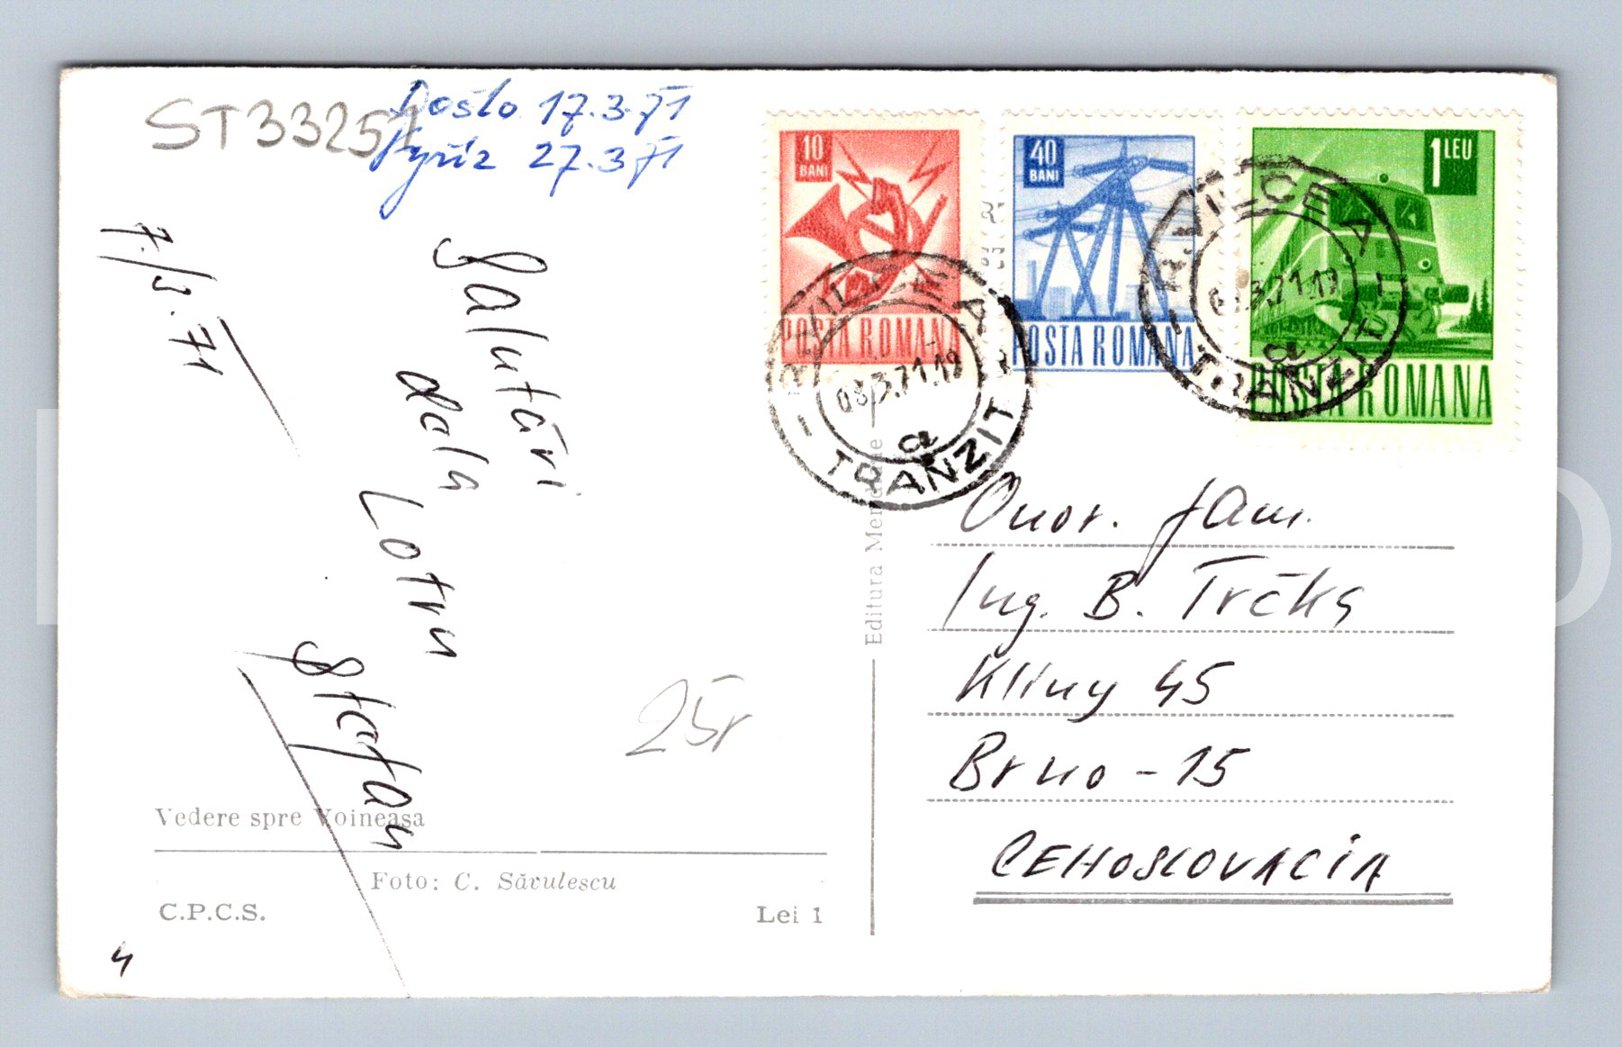 ST3325
Došlo 17.3.71
Vyříz 27.3.71
7./3.71
Salutări
dela
Lotru
Stefan
25,-
Vedere spre Voineasa
Foto: C. Săvulescu
C.P.C.S.
Lei 1
4
Editura Meridiane
10
BANI
POSTA ROMANA
40
BANI
POSTA ROMANA
1 LEU
POSTA ROMANA
R. VILCEA
03.3.71.19
a
TRANZIT
R. VILCEA
03.3.71.19
a
TRANZIT
Onor. fam.
Ing. B. Trčka
Kliny 45
Brno - 15
CEHOSLOVACIA